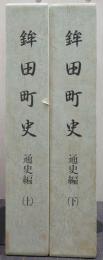 鉾田町史 通史編 (上)
鉾田町史 通史編 (下)